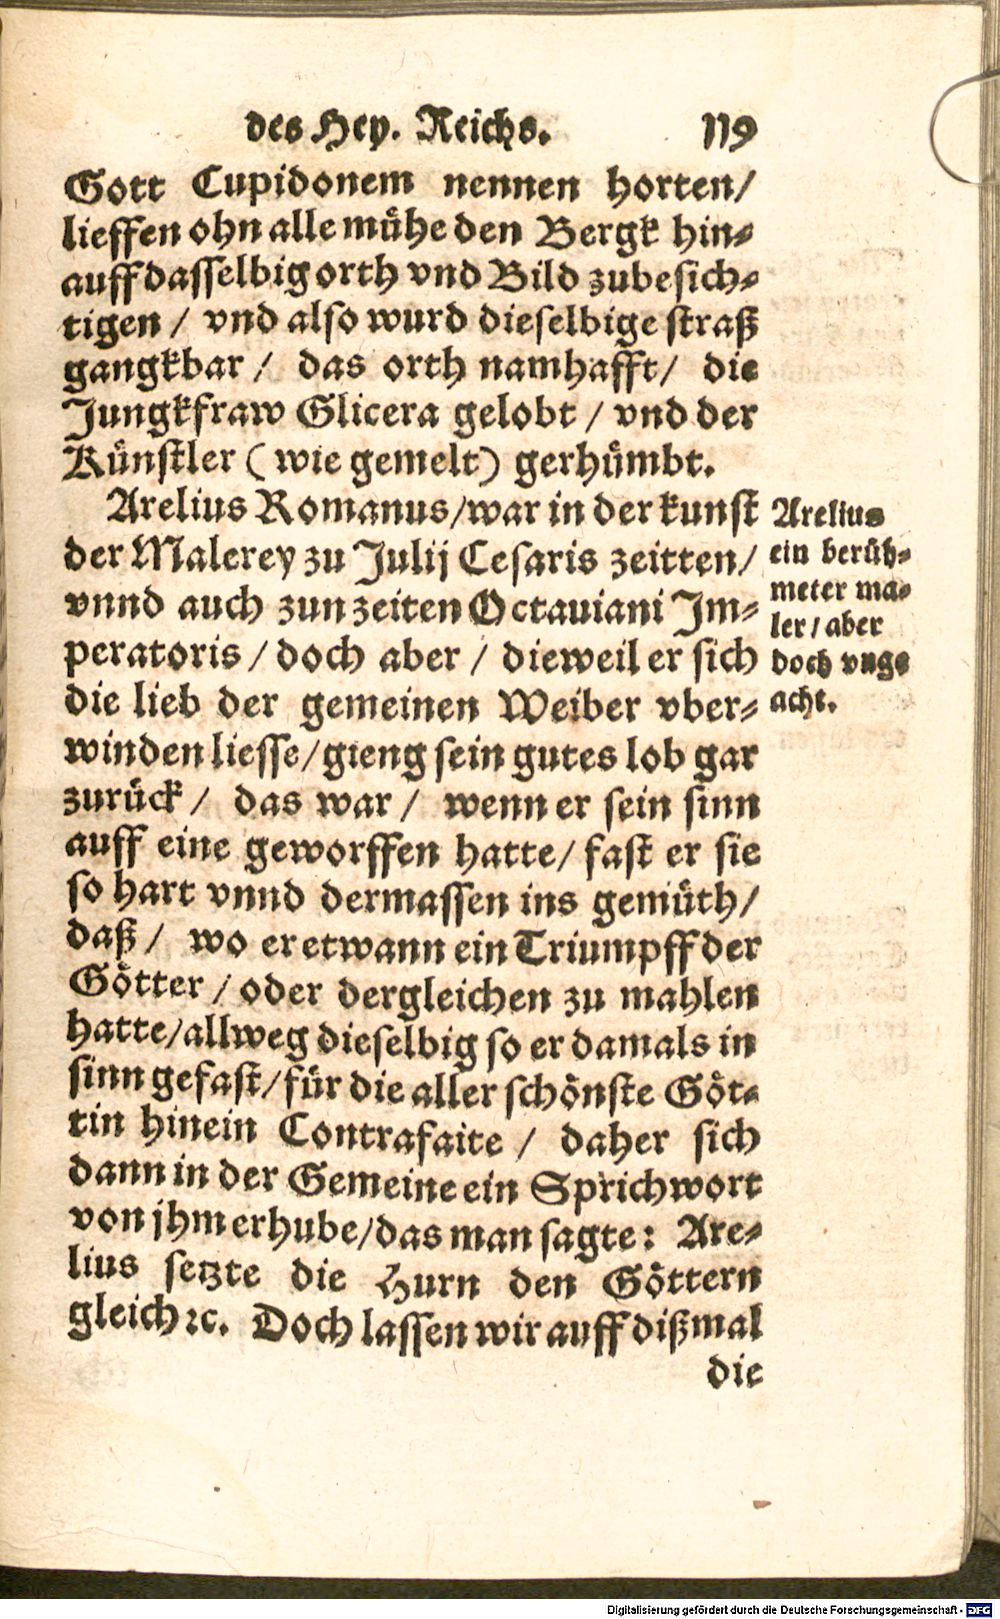 des Hey. Reichs. 119
Gott Cupidonem nennen horten/
lieffen ohn alle mühe den Bergk hin⸗
auff dasselbig orth vnd Bild zubesich⸗
tigen / vnd also wurd dieselbige straß
gangkbar / das orth namhafft/ die
Jungkfraw Glicera gelobt / vnd der
Künstler (wie gemelt) gerhümbt.
Arelius Romanus/war in der kunst
der Malerey zu Julij Cesaris zeitten/
vnnd auch zun zeiten Octauiani Im⸗
peratoris / doch aber / dieweil er sich
die lieb der gemeinen Weiber vber⸗
winden liesse/gieng sein gutes lob gar
zurück / das war / wenn er sein sinn
auff eine geworffen hatte/ fast er sie
so hart vnnd dermassen ins gemüth/
daß / wo er etwann ein Triumpff der
Götter / oder dergleichen zu mahlen
hatte/allweg dieselbig so er damals in
sinn gefast/für die aller schönste Göt⸗
tin hinein Contrafaite / daher sich
dann in der Gemeine ein Sprichwort
von jhm erhube/das man sagte: Are⸗
lius setzte die Hurn den Göttern
gleich ꝛc. Doch lassen wir auff dißmal
die
Arelius
ein berüh⸗
meter ma⸗
ler / aber
doch vnge
acht.
Digitalisierung gefördert durch die Deutsche Forschungsgemeinschaft - DFG